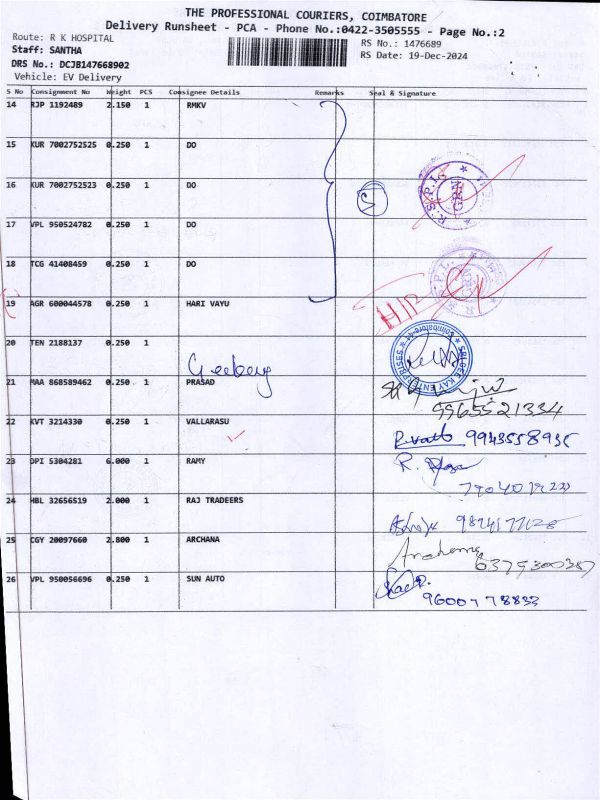 THE PROFESSIONAL COURIERS, COIMBATORE
Delivery Runsheet - PCA - Phone No.:0422-3505555 - Page No.:2
Route: R K HOSPITAL
RS No.: 1476689
Staff: SANTHA
RS Date: 19-Dec-2024
DRS No.: DCJB147668902
Vehicle: EV Delivery
S No Consignment No Weight PCS Consignee Details Remarks Seal & Signature
14 RJP 1192489 2.150 1 RMKV
15 KUR 7002752525 0.250 1 DO
16 KUR 7002752523 0.250 1 DO
17 VPL 950524782 0.250 1 DO
18 TCG 41408459 0.250 1 DO
19 AGR 600044578 0.250 1 HARI VAYU
20 TEN 2188137 0.250 1
21 MAA 868589462 0.250 1 PRASAD
9965521334
22 KVT 3214330 0.250 1 VALLARASU
9943558935
23 DPI 5304281 6.000 1 RAMY
24 HBL 32656519 2.000 1 RAJ TRADEERS
25 CGY 20097660 2.800 1 ARCHANA
Archana
6379300387
26 VPL 950056696 0.250 1 SUN AUTO
9600778833